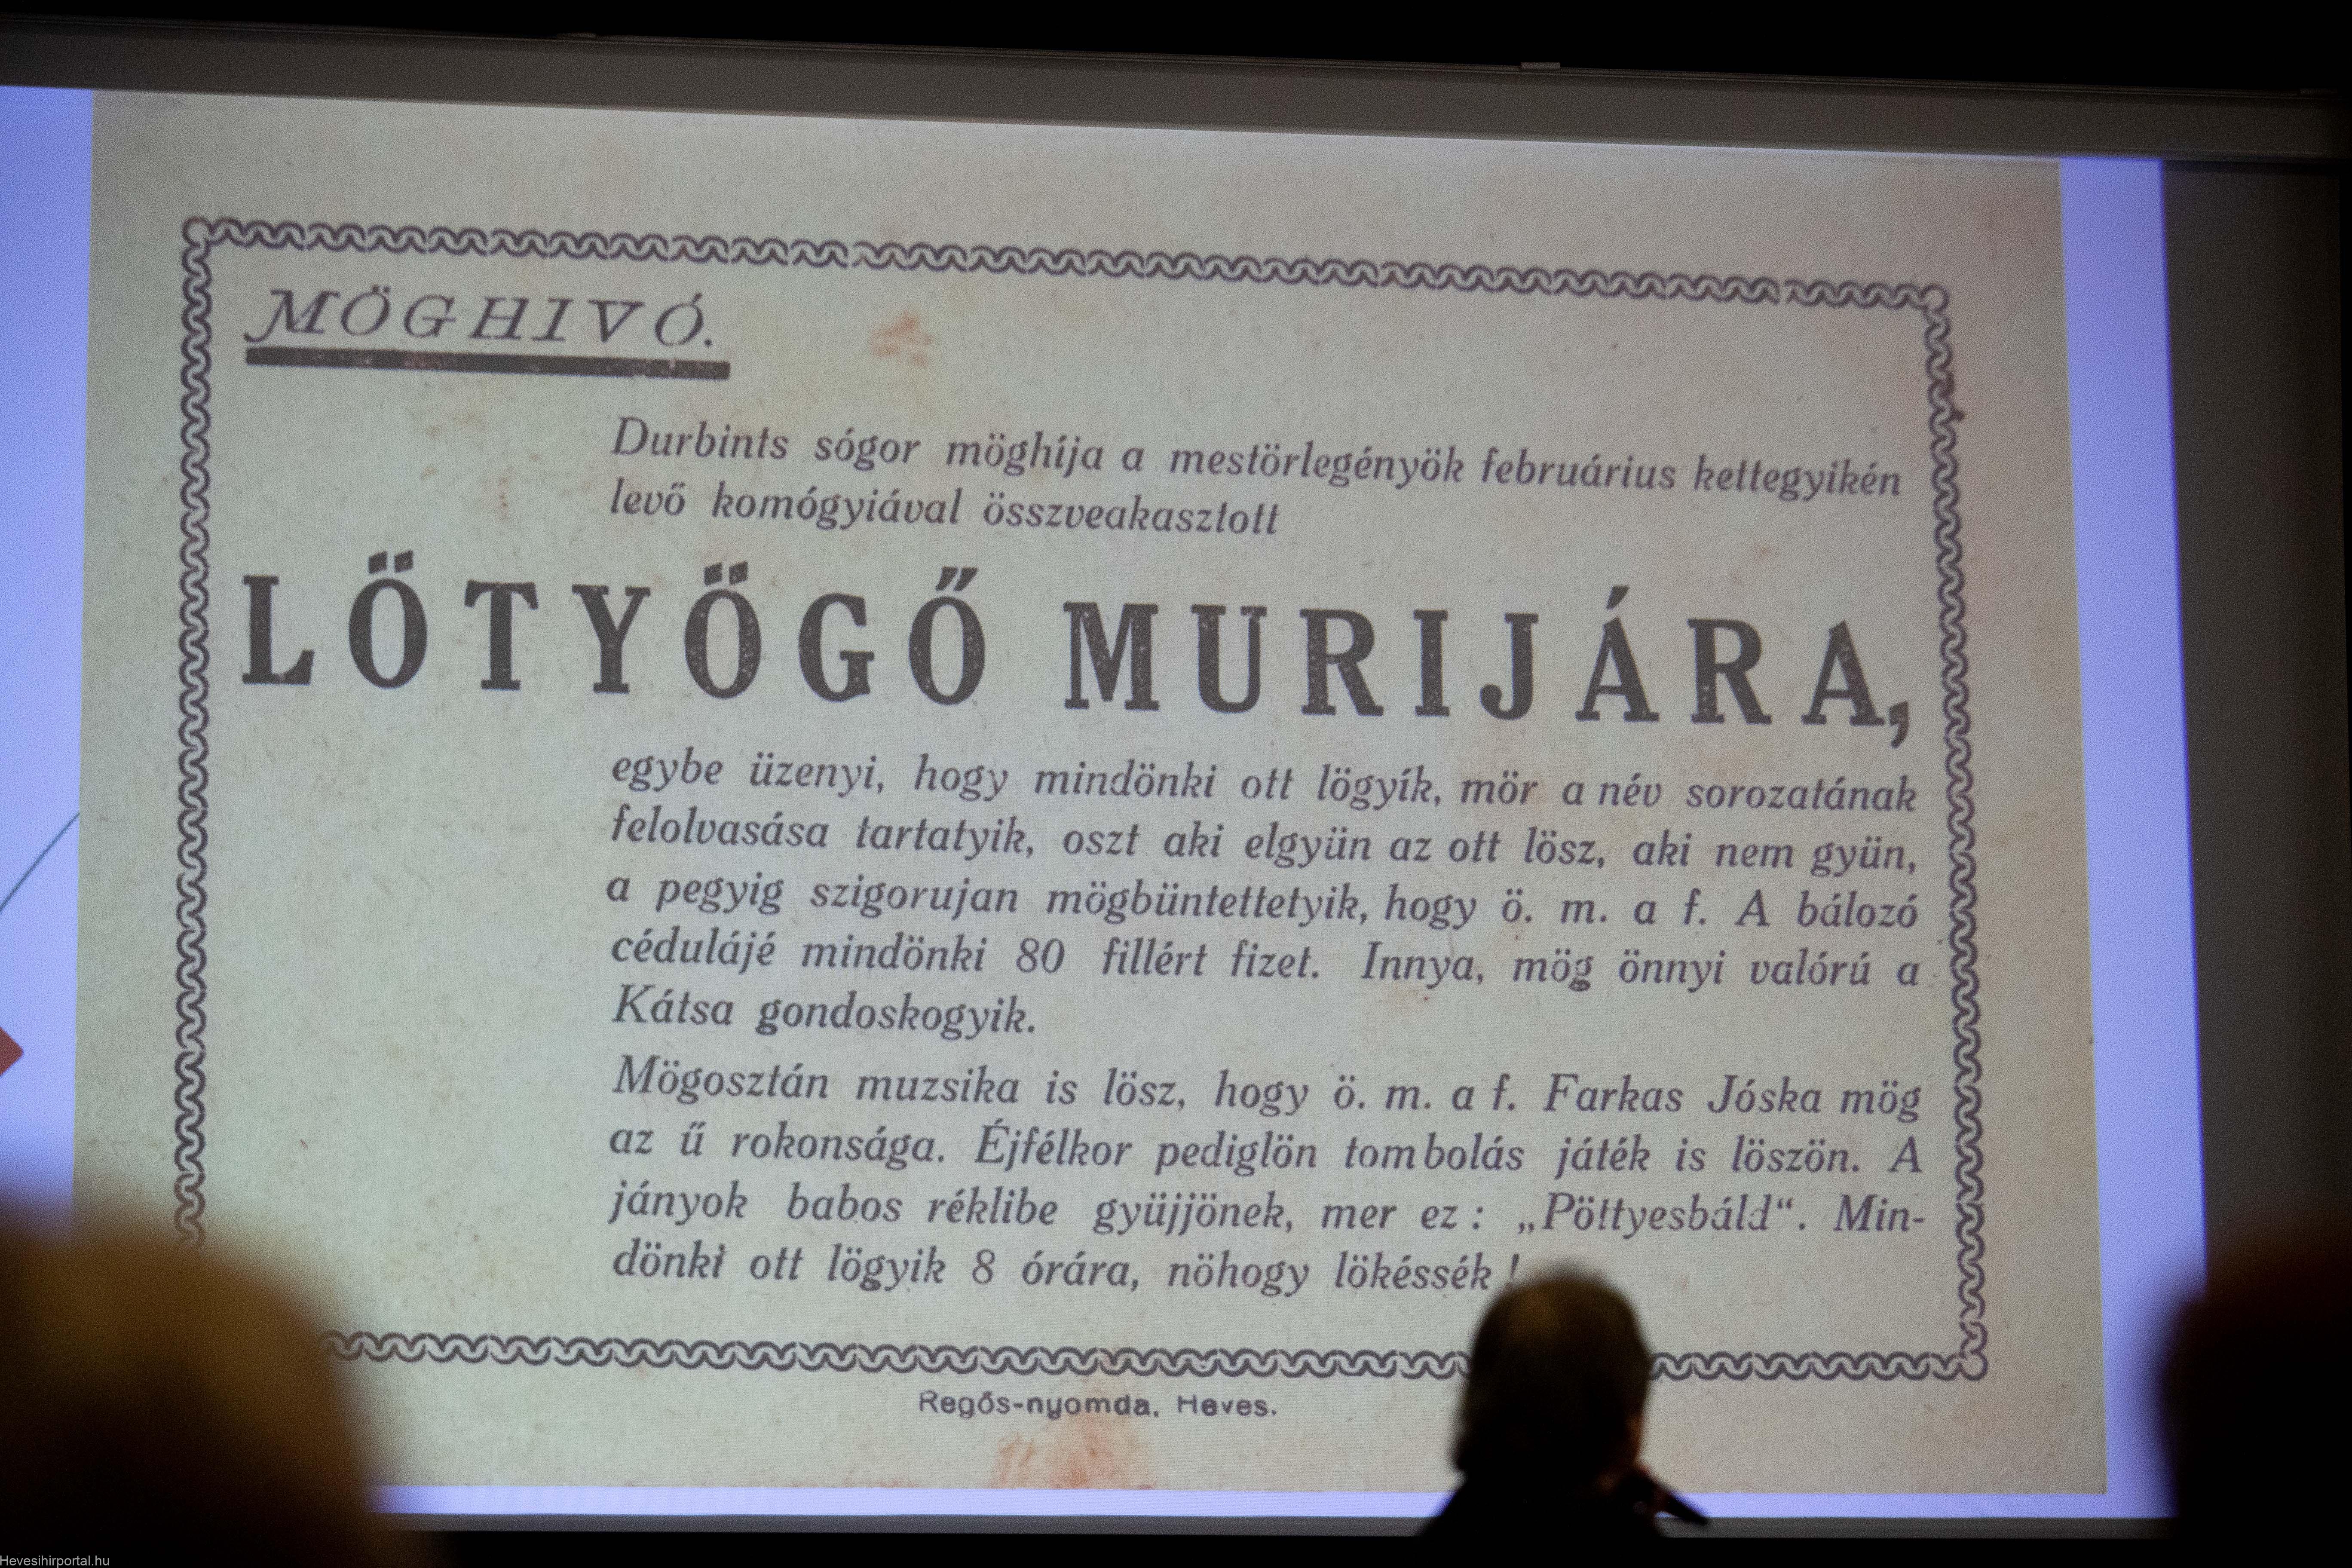 MÖGHIVÓ.
Durbints sógor möghíja a mestörlegényök februárius kettegyikén
levő komógyiával összveakasztott
LÖTYÖGŐ MURIJÁRA,
egybe üzenyi, hogy mindönki ott lögyík, mör a név sorozatának
felolvasása tartatyik, oszt aki elgyün az ott lösz, aki nem gyün,
a pegyig szigorujan mögbüntettetyik, hogy ö. m. a f. A bálozó
cédulájé mindönki 80 fillért fizet. Innya, mög önnyi valórú a
Kátsa gondoskogyik.
Mögosztán muzsika is lösz, hogy ö. m. a f. Farkas Jóska mög
az ű rokonsága. Éjfélkor pediglön tombolás játék is löszön. A
jányok babos réklibe gyüjjönek, mer ez: „Pöttyesbáld“. Min-
dönki ott lögyik 8 órára, nöhogy lökéssék!
Regős-nyomda, Heves.
Hevesihirportal.hu